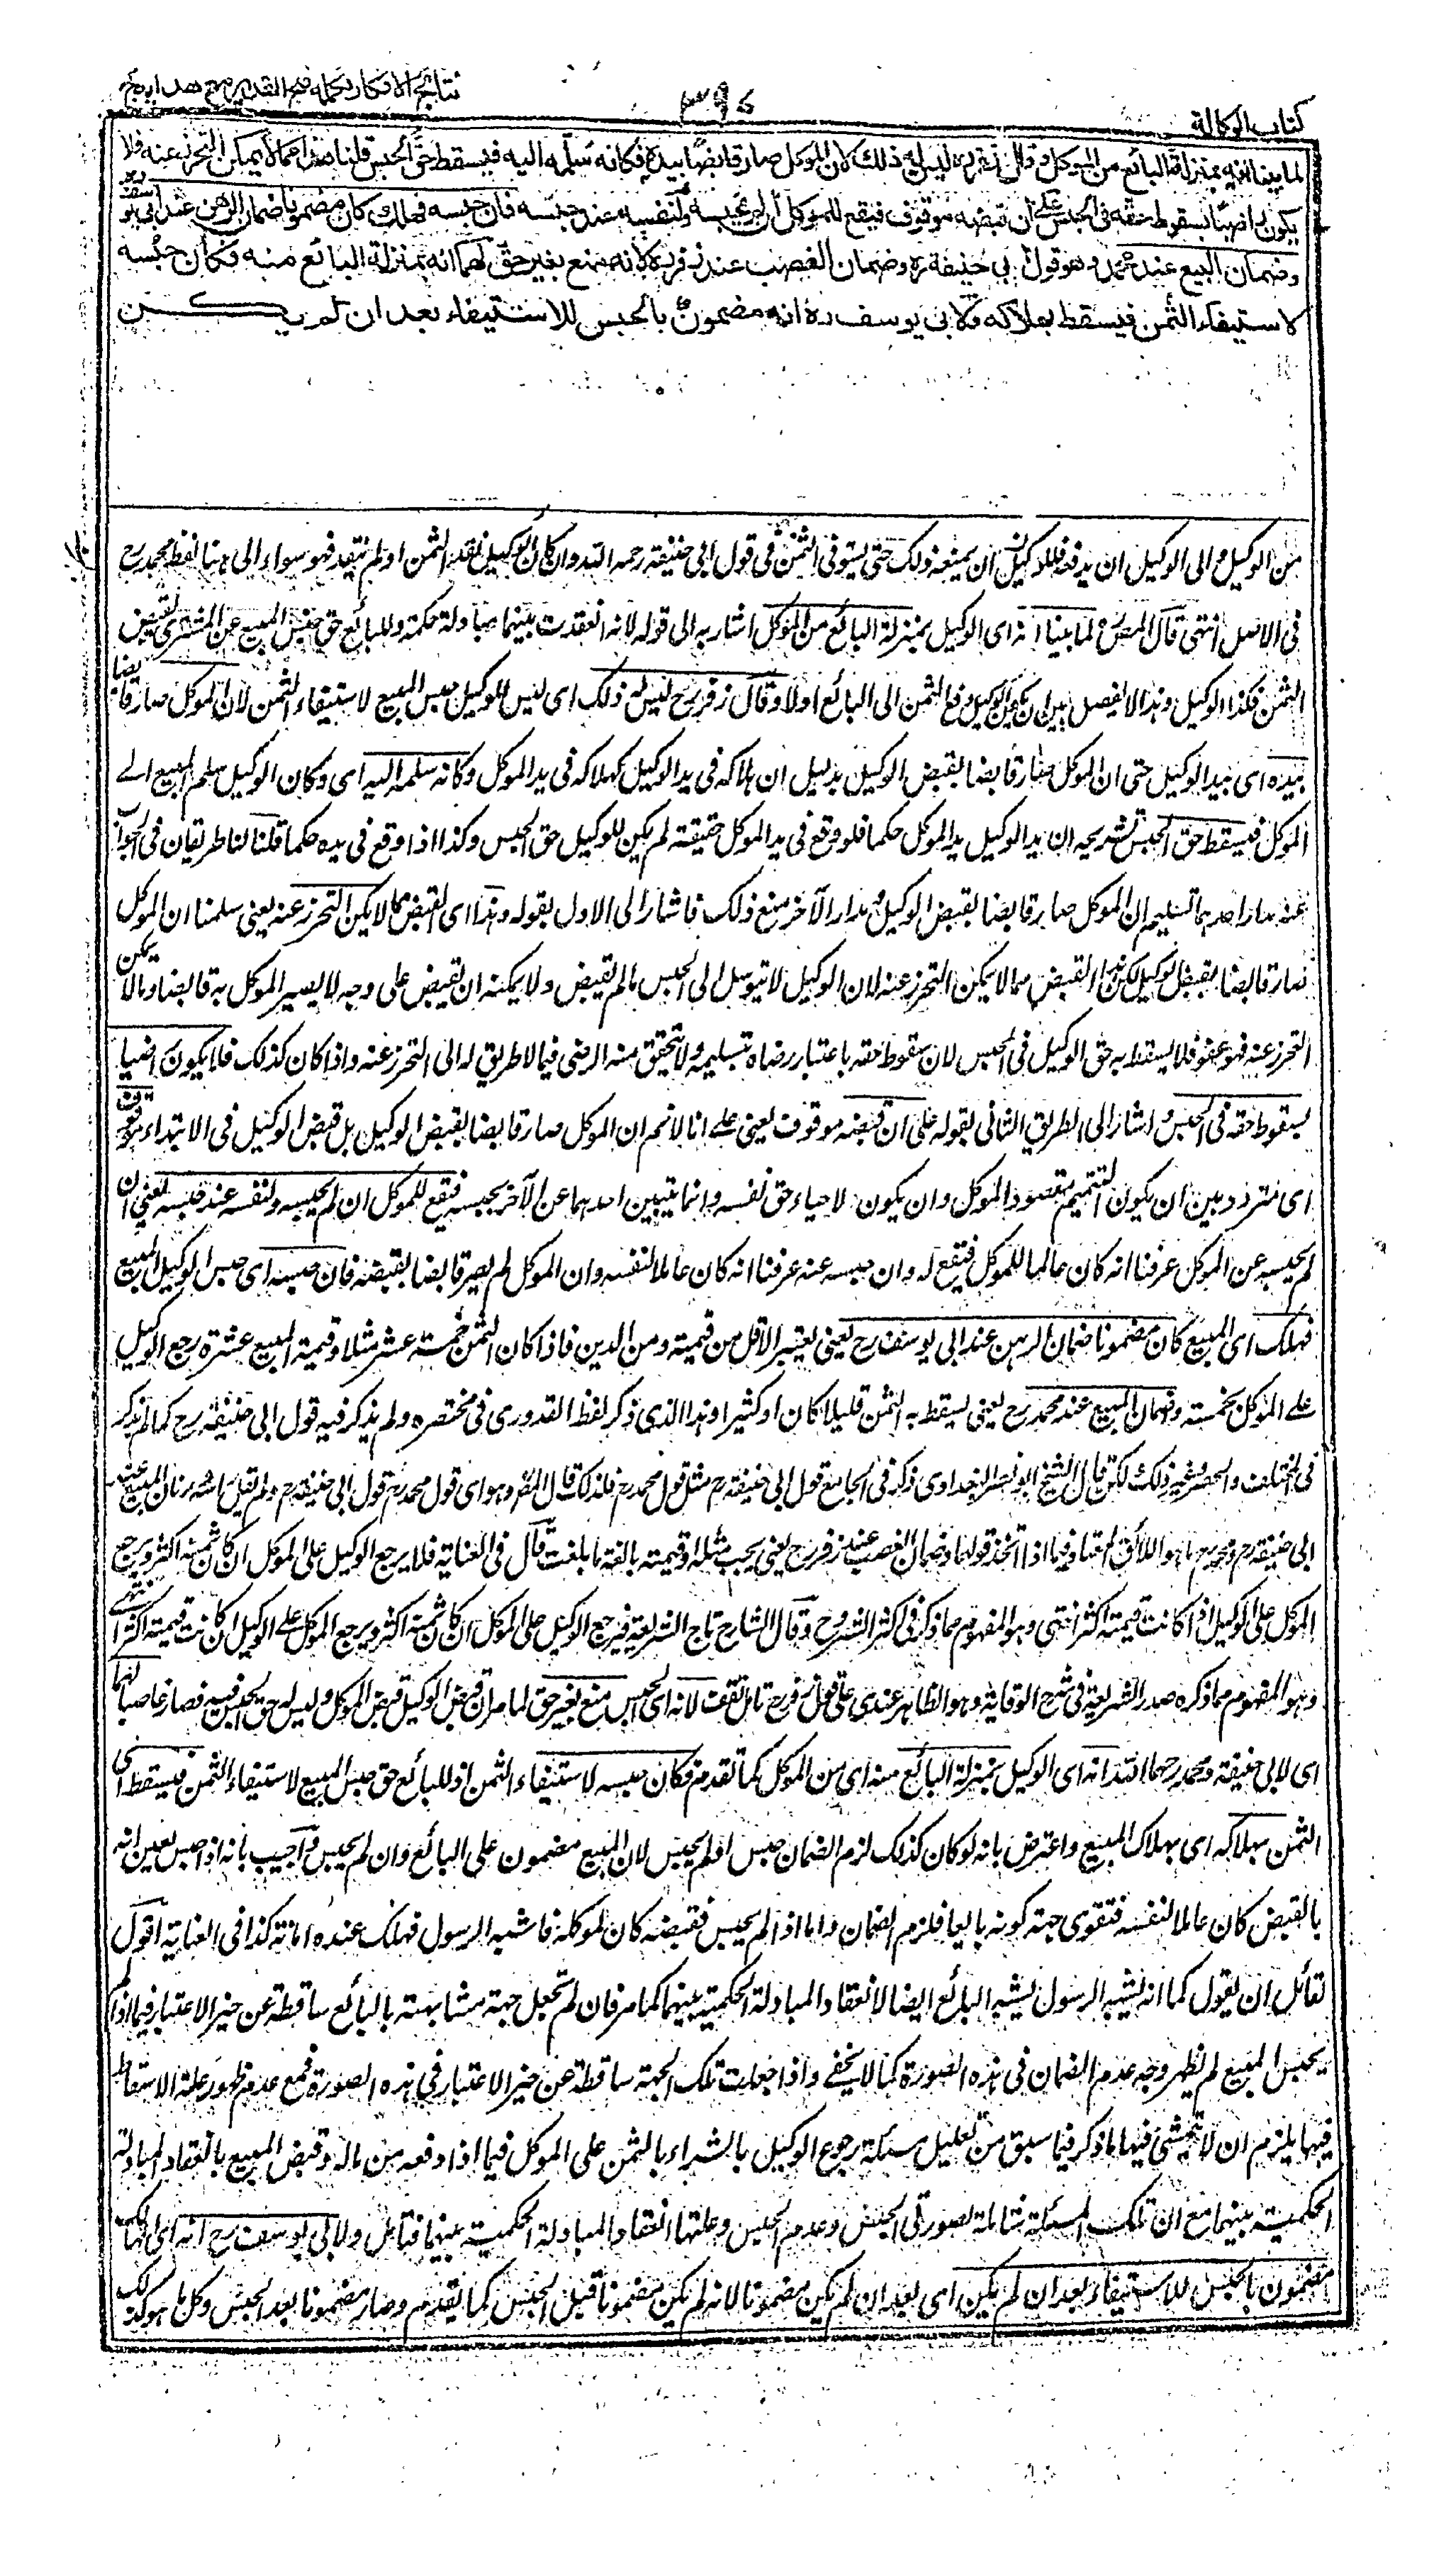 نتائج الافكار تكملة فتح القدير مع هدايه ج
٣٩٤
كتاب الوكالة
لما بينا انه بمنزلة البائع من الموكل وقال زفر ره ليس له ذلك لان الموكل صار قابضا بيده فكانه سلمه اليه فيسقط حق الحبس قلنا هذا مما لا يمكن التحرز عنه فلا
يكون راضيا بسقوط حقه في الحبس على ان قبضه موقوف فيقع للموكل ان لم يحبسه ولنفسه عند حبسه فان حبسه فهلك كان مضمونا ضمان الرهن عند ابي يوسف ره
وضمان البيع عند محمد وهو قول ابي حنيفة ره وضمان الغصب عند زفر ره لانه منع بغير حق لهما انه بمنزلة البائع منه فكان حبسه
لاستيفاء الثمن فيسقط بهلاكه ولابي يوسف ره انه مضمون بالحبس للاستيفاء بعد ان لم يكن
من الوكيل والى الوكيل ان يدفعه فللوكيل ان يمنعه ذلك حتى يستوفي الثمن في قول ابي حنيفة رحمه الله وان كان الوكيل نقد الثمن او لم ينقد فهو سواء الى هنا لفظ محمد رح
في الاصل انتهى قال المص رح لما بينا انه اى الوكيل بمنزلة البائع من الموكل اشار به الى قوله لانه انعقدت بينهما مبادلة حكمية وللبائع حق حبس المبيع عن المشتري لقبض
الثمن فكذا الوكيل وهذا لا يفصل بين ان يكون الوكيل دفع الثمن الى البائع اولا وقال زفر رح ليس له ذلك اى ليس للوكيل حبس المبيع لاستيفاء الثمن لان الموكل صار قابضا
بيده اى بيد الوكيل حتى ان الموكل صار قابضا بقبض الوكيل بدليل ان هلاكه في يد الوكيل كهلاكه في يد الموكل وكانه سلمه اليه اى وكان الوكيل سلم المبيع الى
الموكل فيسقط حق الحبس تشريحه ان يد الوكيل يد الموكل حكما فلو وقع في يد الموكل حقيقة لم يكن للوكيل حق الحبس وكذا اذا وقع في يده حكما قلنا لنا طريقان في الجواب
عنه مدار احدهما تسليم ان الموكل صار قابضا بقبض الوكيل ومدار الآخر منع ذلك فاشار الى الاول بقوله وهذا اى القبض مما لا يمكن التحرز عنه يعني سلمنا ان الموكل
صار قابضا بقبض الوكيل لكن هذا القبض مما لا يمكن التحرز عنه لان الوكيل لا يتوسل الى الحبس ما لم يقبض ولا يمكنه ان يقبض على وجه لا يصير الموكل به قابضا وما لا يمكن
التحرز عنه فهو عفو فلا يسقط به حق الوكيل في الحبس لان سقوط حقه باعتبار رضاه بتسليمه ولا يتحقق منه الرضى فيما لا طريق له الى التحرز عنه واذا كان كذلك فلا يكون راضيا
بسقوط حقه في الحبس واشار الى الطريق الثاني بقوله على ان قبضه موقوف يعني على انا لا نسلم ان الموكل صار قابضا بقبض الوكيل بل قبض الوكيل في الابتداء موقوف
اى متردد بين ان يكون لتتميم مقصود الموكل وان يكون لاحياء حق نفسه وانما يتبين احدهما عن الآخر بحبسه فيقع للموكل ان لم يحبسه ولنفسه عند حبسه يعني ان
لم يحبسه عن الموكل عرفنا انه كان عاملا للموكل فيقع له وان حبسه عنه عرفنا انه كان عاملا لنفسه وان الموكل لم يصر قابضا بقبضه فان حبسه اى حبس الوكيل المبيع
فهلك اى المبيع كان مضمونا ضمان الرهن عند ابى يوسف رح يعني يعتبر الاقل من قيمته ومن الدين فاذا كان الثمن خمسة عشر مثلا وقيمة المبيع عشرة رجع الوكيل
على الموكل بخمسة وضمان المبيع عند محمد رح يعني يسقط به الثمن قليلا كان او كثيرا وهذا الذي ذكر لفظ القدوري في مختصره ولم يذكر فيه قول ابي حنيفة رح كما لم يذكر
في المختلف والحصر وغير ذلك لكن قال الشيخ ابو نصر البغدادي ذكر في الجامع قول ابي حنيفة رح مثل قول محمد رح فلذلك قال المص وهو اى قول محمد رح قول ابي حنيفة رح ولم يقل
ابي حنيفة رح ومحمد رح ما هو اللائق المعتاد فيما اذا اتحد قولهما وضمان الغصب عند زفر رح يعني يجب مثله او قيمته بالغة ما بلغت قال في العناية فلا يرجع الوكيل على الموكل ان كان ثمنه اكثر ويرجع
الموكل على الوكيل اذا كانت قيمته اكثر انتهى وهو المفهوم مما ذكر في اكثر الشروح وقال الشارح تاج الشريعة فيرجع الوكيل على الموكل ان كان ثمنه اكثر ويرجع الموكل على الوكيل ان كانت قيمته اكثر انتهى
وهو المفهوم مما ذكره صدر الشريعة في شرح الوقاية وهو الظاهر عندي على قول زفر رح تامل تقف لانه اى الحبس منع بغير حق لما مر ان قبض الوكيل قبض الموكل وليس له حق الحبس فيه فصار غاصبا لهما
اى لابي حنيفة ومحمد رحمهما الله انه اى الوكيل بمنزلة البائع منه اى من الموكل كما تقدم فكان حبسه لاستيفاء الثمن اذ للبائع حق حبس المبيع لاستيفاء الثمن فيسقط اى
الثمن بهلاكه اى بهلاك المبيع واعترض بانه لو كان كذلك لزم الضمان حبس او لم يحبس لان المبيع مضمون على البائع وان لم يحبس واجيب بانه اذا حبس تعين انه
بالقبض كان عاملا لنفسه فتقوى جهة كونه بائعا فلزم الضمان واما اذا لم يحبس فقبضه كان لموكله فاشبه الرسول فهلك عنده امانة كذا في العناية اقول
لقائل ان يقول كما انه يشبه الرسول يشبه البائع ايضا لانعقاد المبادلة الحكمية بينهما كما مر فان لم تجعل جهة مشابهته بالبائع ساقطة عن حيز الاعتبار فيما اذا لم
يحبس المبيع لم يظهر وجه عدم الضمان في هذه الصورة كما لا يخفى واذا جعلت تلك الجهة ساقطة عن حيز الاعتبار في هذه الصورة فمع عدم ظهور علة الاسقاط
فيها يلزم ان لا يتمشى فيها ما ذكر فيما سبق من تعليل مسئلة رجوع الوكيل بالشراء بالثمن على الموكل فيما اذا دفعه من ماله وقبض المبيع بانعقاد المبادلة
الحكمية بينهما مع ان تلك المسئلة شاملة لصورتي الحبس وعدم الحبس وعلتها انعقاد المبادلة الحكمية بينهما فتامل ولابي يوسف رح انه اى الهالك
مضمون بالحبس للاستيفاء بعد ان لم يكن اى بعد ان لم يكن مضمونا لانه لم يكن مضمونا قبل الحبس كما تقدم وصار مضمونا بعد الحبس وكل ما هو كذلك